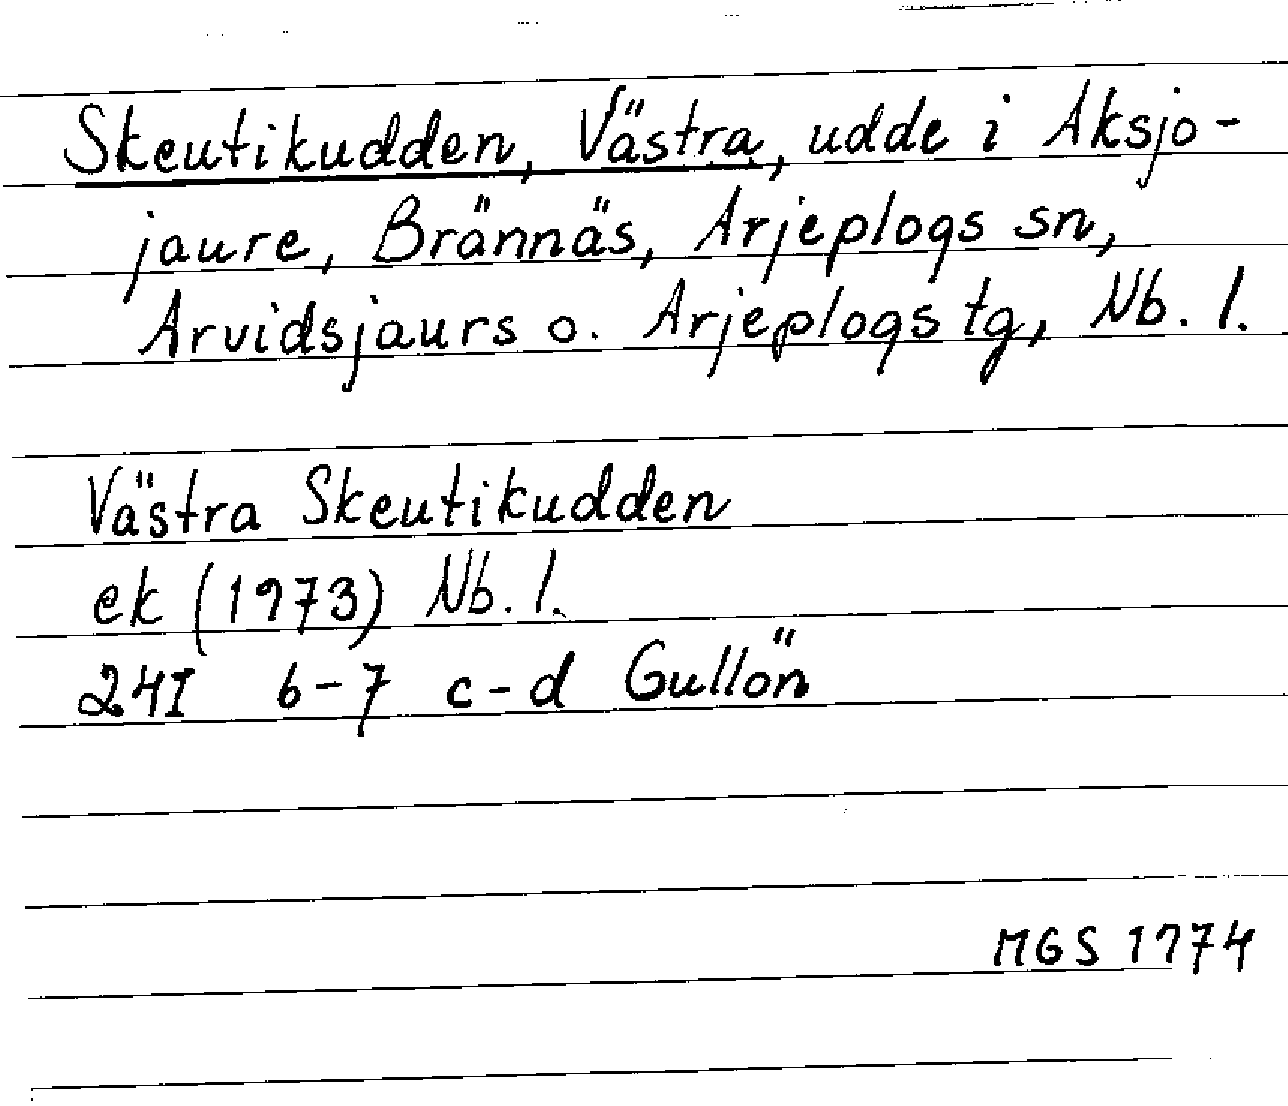 Skeutikudden, Västra, udde i Aksjo-
jaure, Brännäs, Arjeplogs sn,
Arvidsjaurs o. Arjeplogs tg, Nb. l.
Västra Skeutikudden
ek (1973) Nb. l.
24I 6-7 c-d Gullön
MGS 1974